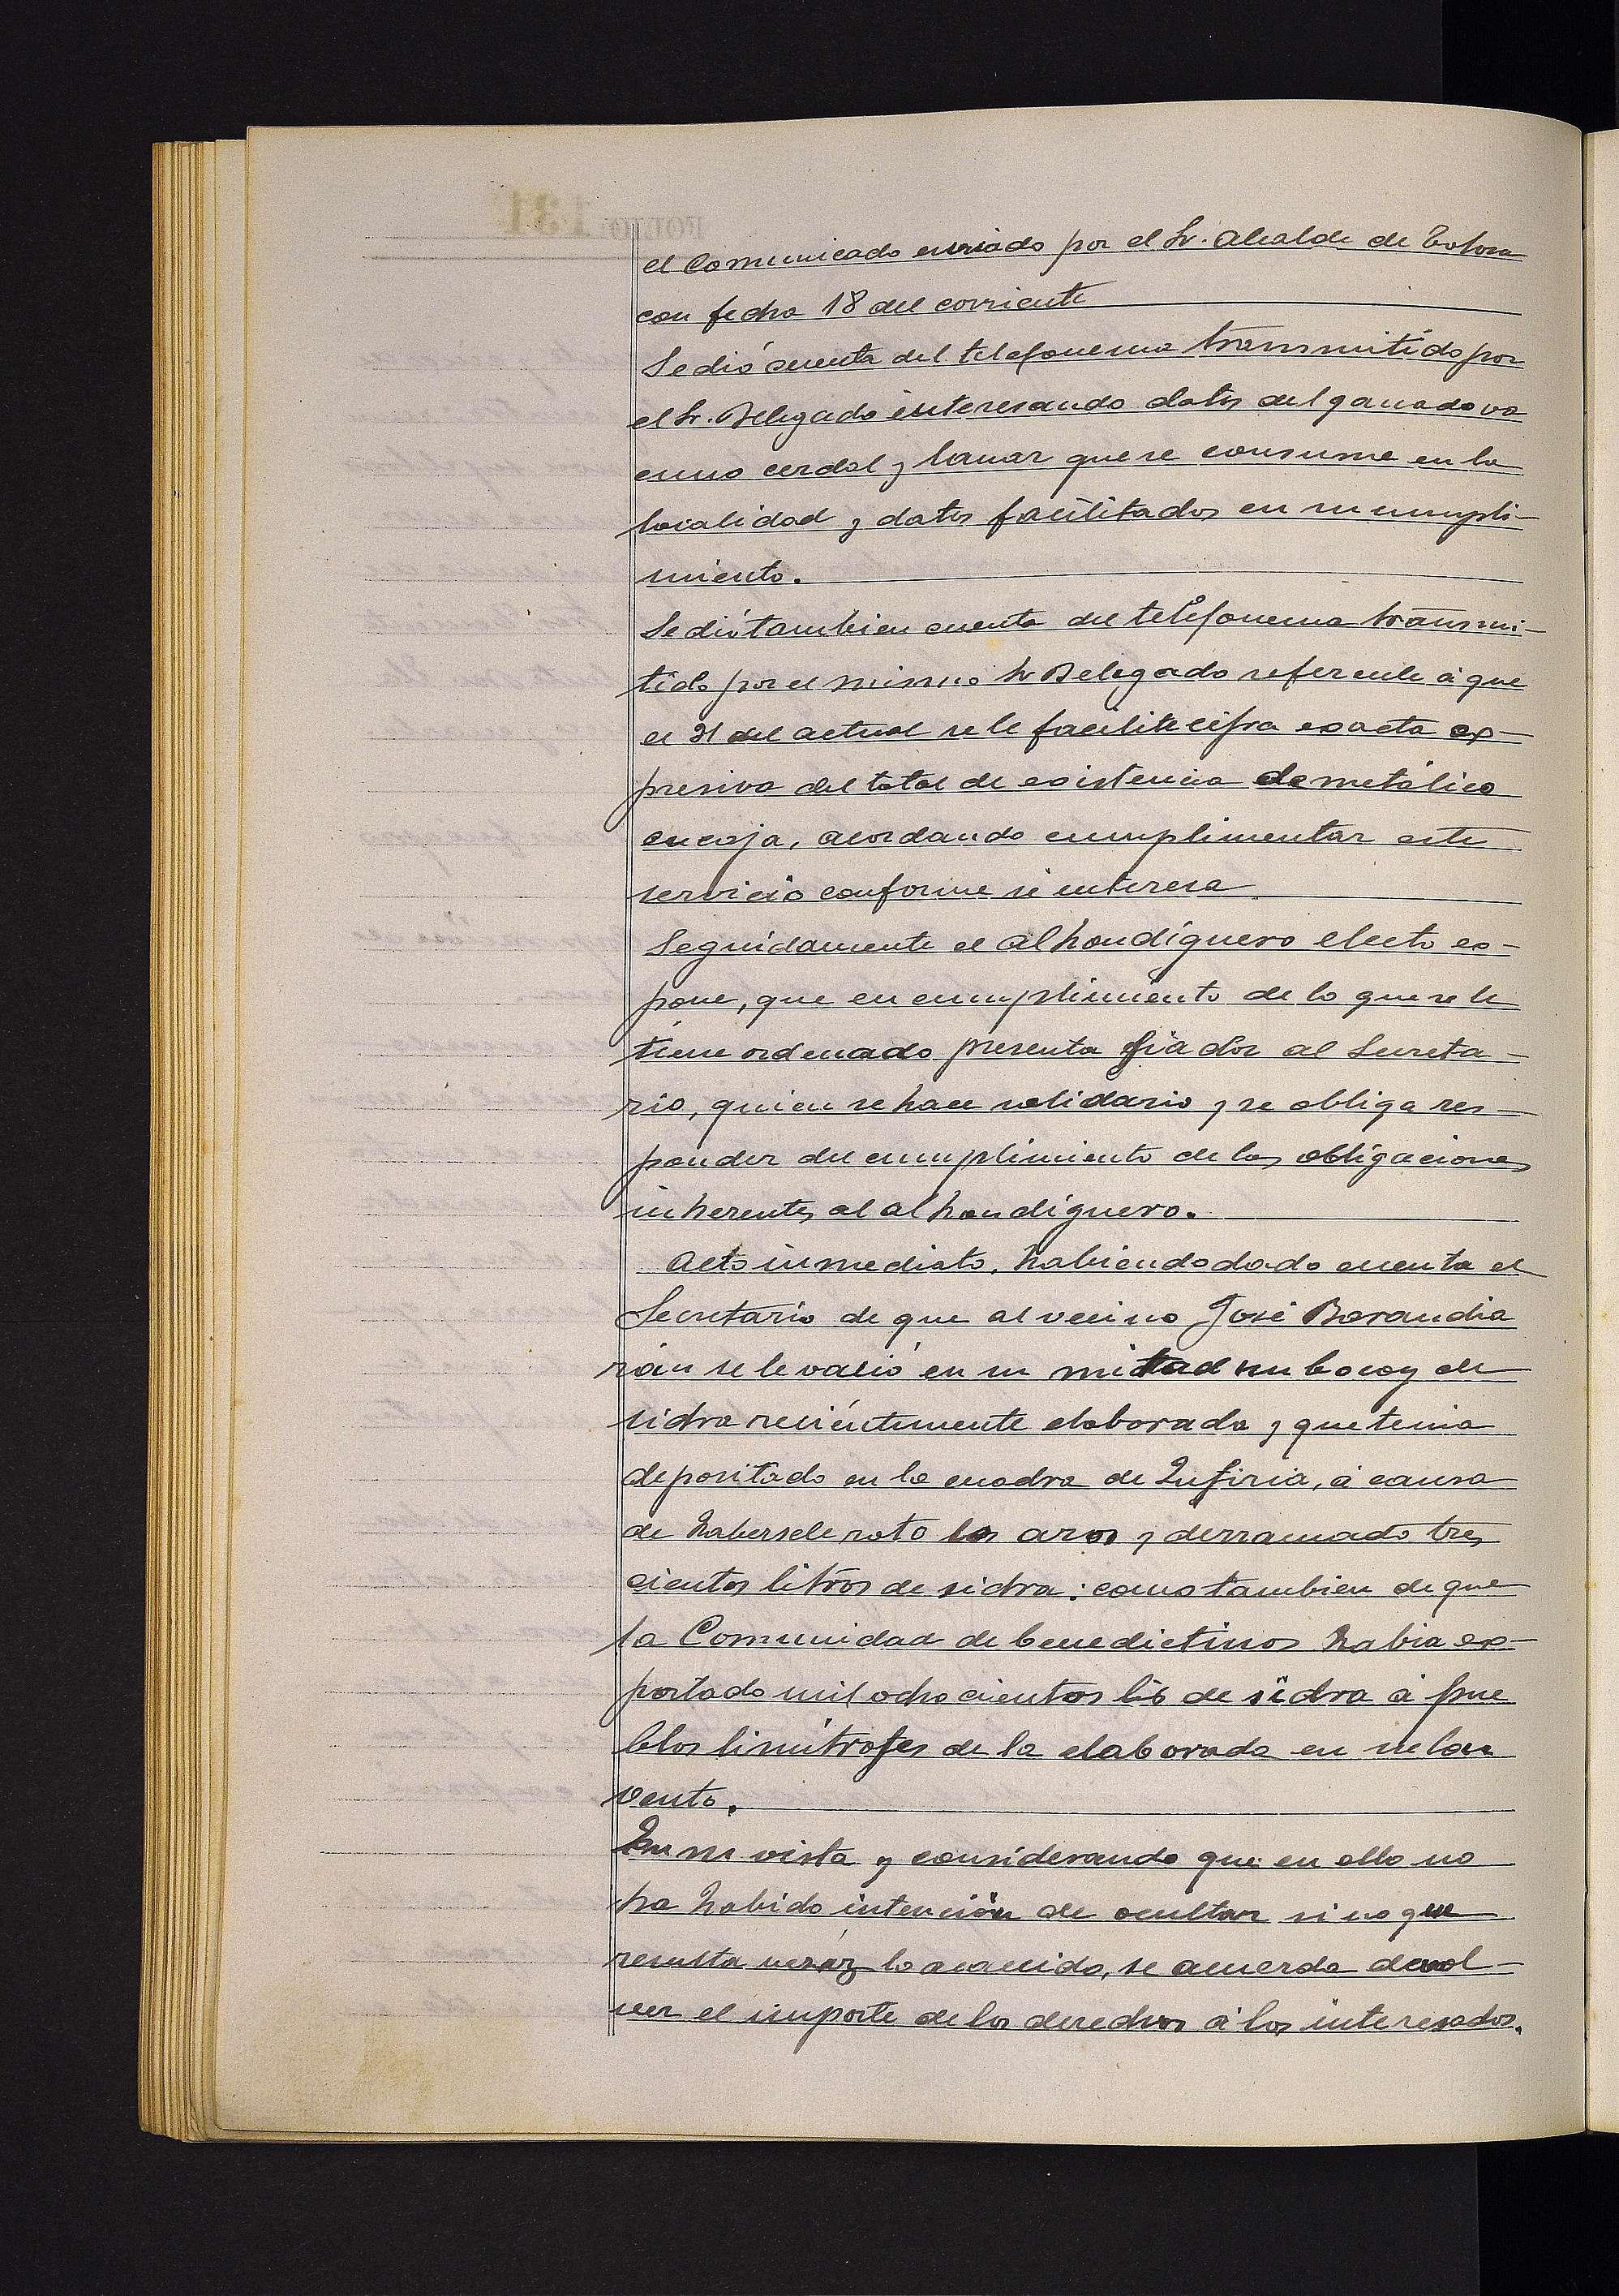 el Comunicado enviado por el Sr. Alcalde de Tolosa
con fecha 18 del corriente
Se dió cuenta del telefonema transmitido por
el Sr. Delegado interesando datos del ganado va
cuno cerdal y lanar que se consume en la
localidad y datos facilitados en su cumpli-
miento.
Se dió tambien cuenta del telefonema transmi-
tido por el mismo Sr Delegado referente á que
el 31 del actual se le facilite cifra exacta ex-
presiva del total de existencia de metálico
en caja, acordando cumplimentar este
servicio conforme se interesa
Seguidamente el alhondiguero electo ex-
pone, que en cumplimiento de lo que se le
tiene ordenado presenta fiador al Secreta-
rio, quien se hace solidario y se obliga res-
ponder del cumplimiento de las obligaciones
inherentes al alhondiguero.
Acto inmediato, habiendo dado cuenta el
Secretario de que al vecino José Barandia
rán se le vació en su mitad un bocoy de
sidra recientemente elaborada y que tenia
depositado en la cuadra de, á causa
de habersele roto los aros y derramado tres
cientos litros de sidra: como tambien de que
la Comunidad de benedictinos habia ex-
portado mil ocho cientos lts de sidra á pue
blos limítrofes de la elaborada en su Con
vento.
En su vista y considerando que en ello no
ha habido intención de ocultar si no que
resulta veráz lo acaecido, se acuerda devol-
ver el importe de los derechos á los interesados.
FOLIO 131